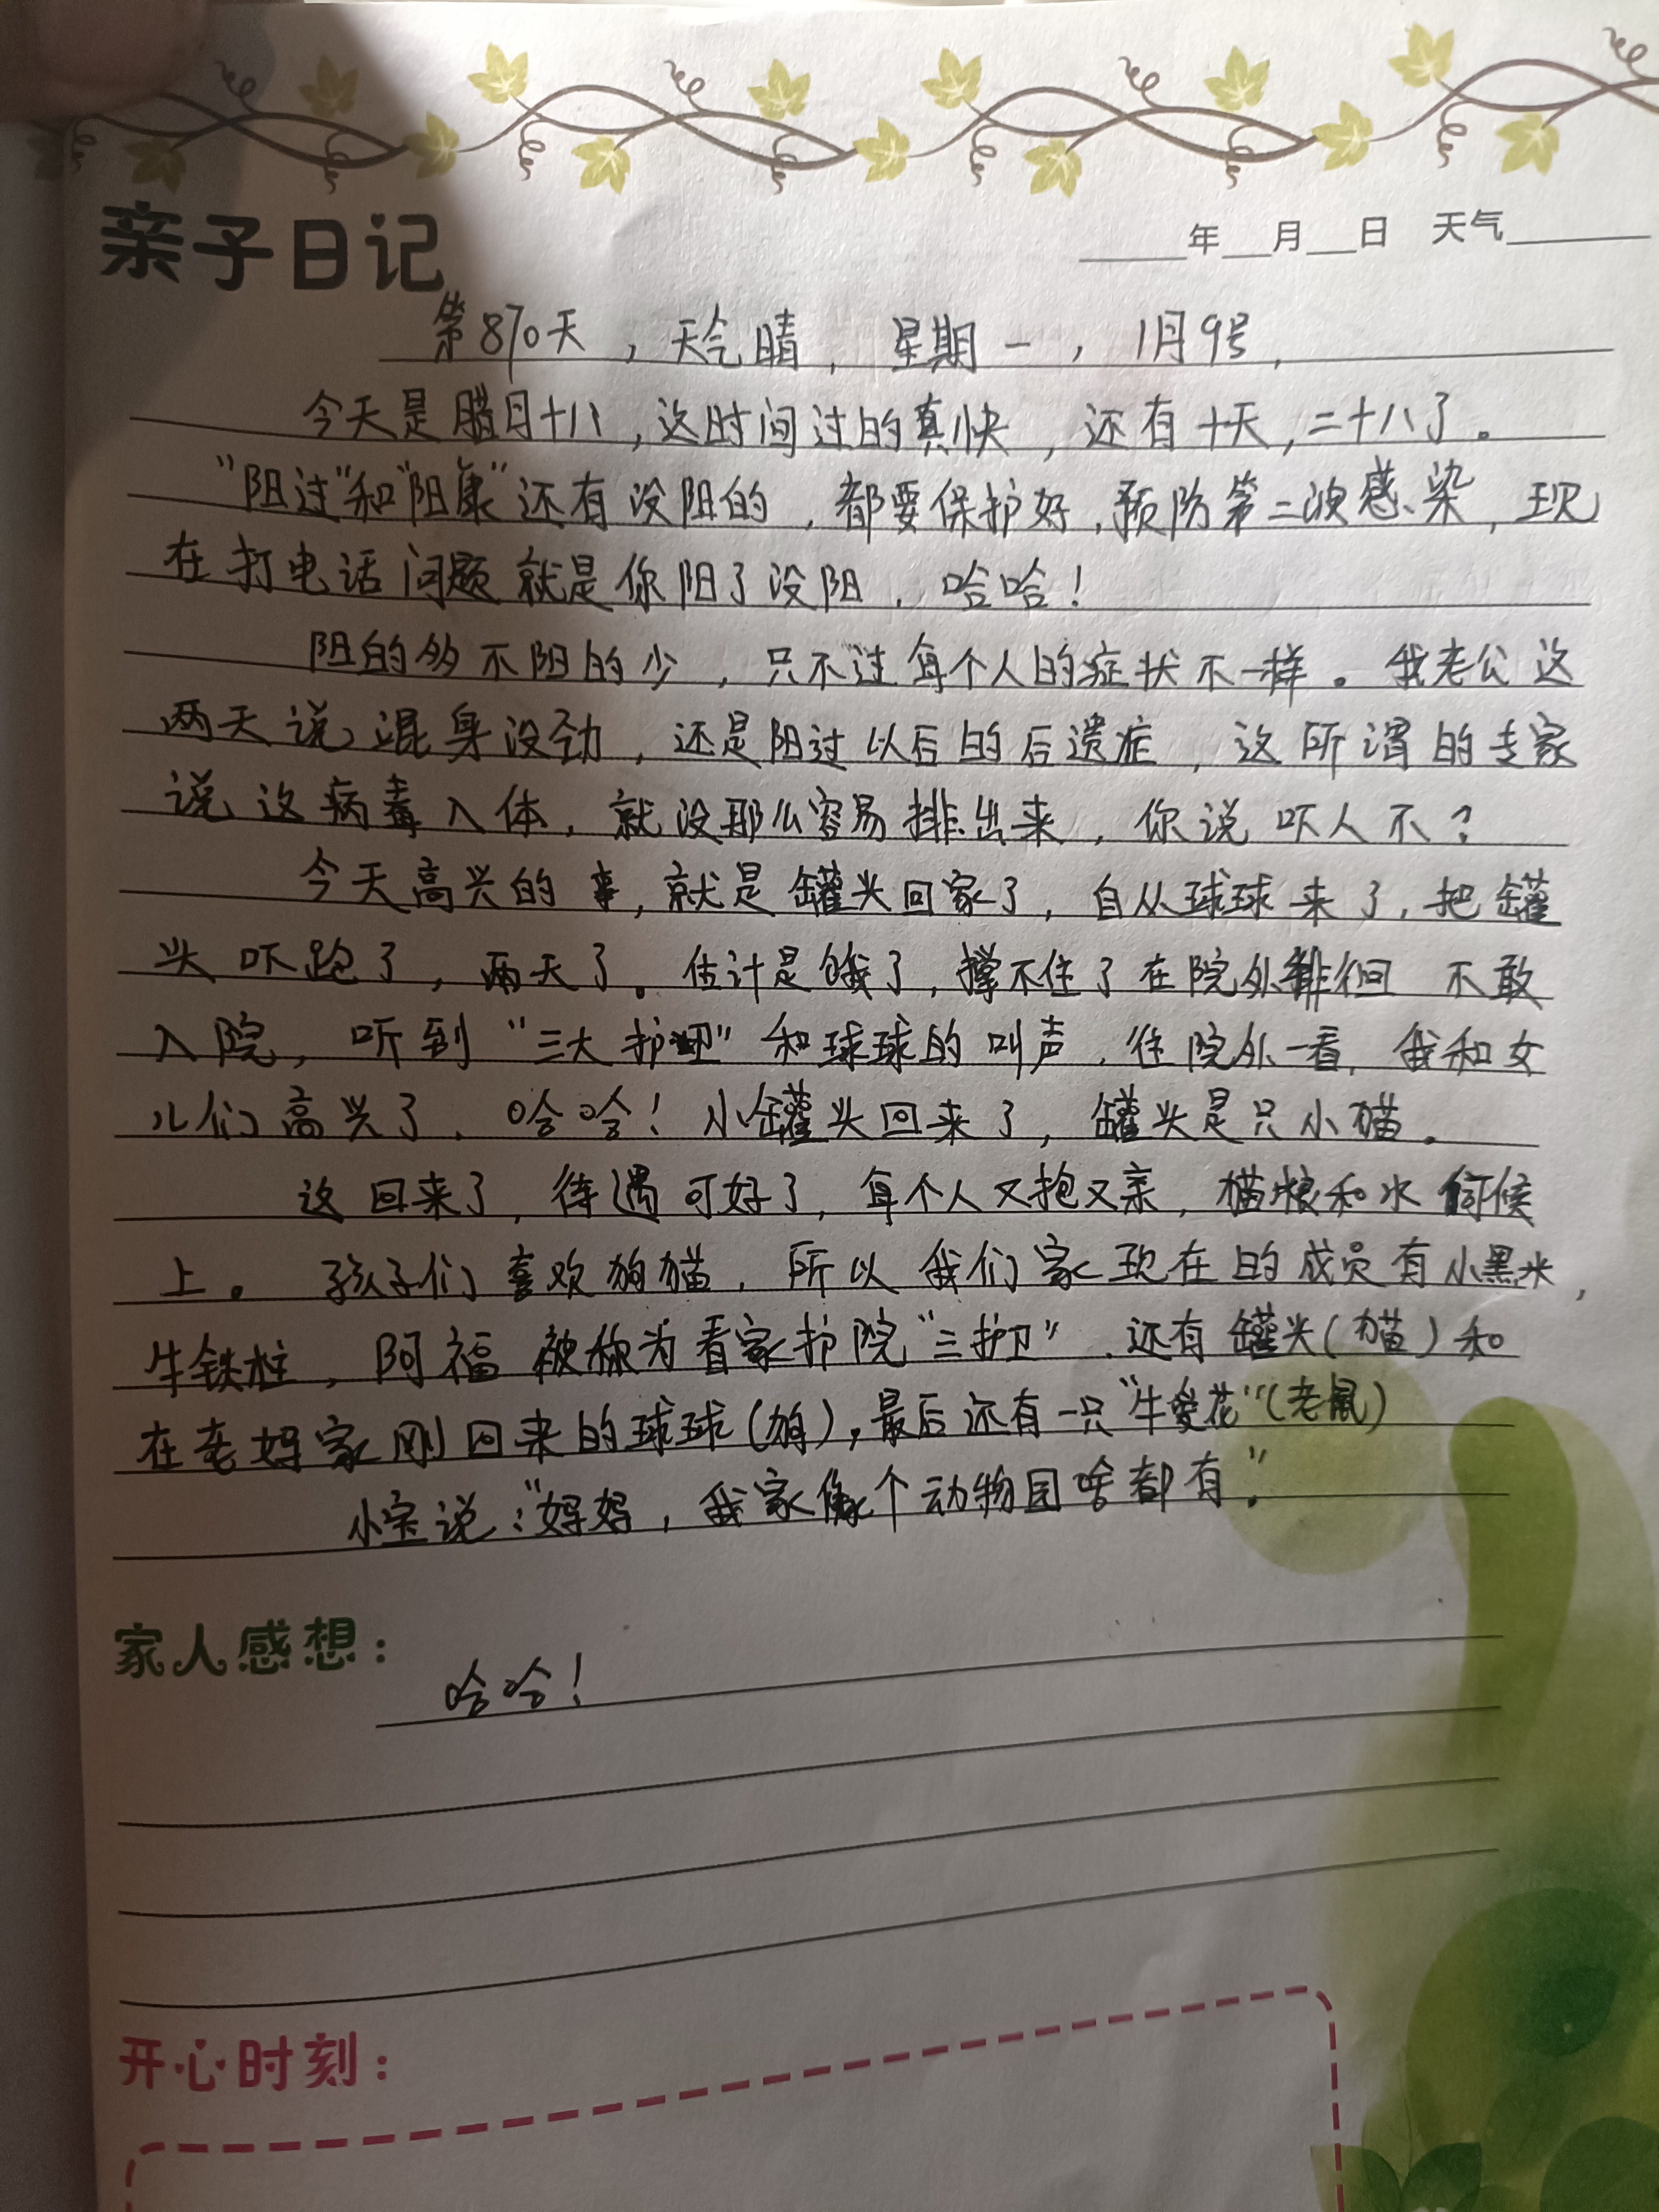 亲子日记
年 月 日 天气
第870天，天气晴，星期一，1月9号，
今天是腊月十八，这时间过的真快，还有十天，二十八了。
“阳过”和“阳康”还有没阳的，都要保护好，预防第二波感染，现
在打电话问题就是你阳了没阳，哈哈！
阳的多不阳的少，只不过每个人的症状不一样。我老公这
两天说混身没劲，还是阳过以后的后遗症，这所谓的专家
说这病毒入体，就没那么容易排出来，你说吓人不？
今天高兴的事，就是罐头回家了，自从球球来了，把罐
头吓跑了，两天了。估计是饿了，撑不住了在院外徘徊 不敢
入院，听到“三大护卫”和球球的叫声，往院外一看，我和女
儿们高兴了，哈哈！小罐头回来了，罐头是只小猫。
这回来了，待遇可好了，每个人又抱又亲，猫粮和水伺候
上。孩子们喜欢狗猫，所以我们家现在的成员有小黑米，
牛铁柱，阿福被称为看家护院“三护卫”，还有罐头(猫)和
在老妈家刚回来的球球(狗)，最后还有一只“牛爱花”(老鼠)
小宝说：“妈妈，我家像个动物园啥都有。”
家人感想：
哈哈！
开心时刻：